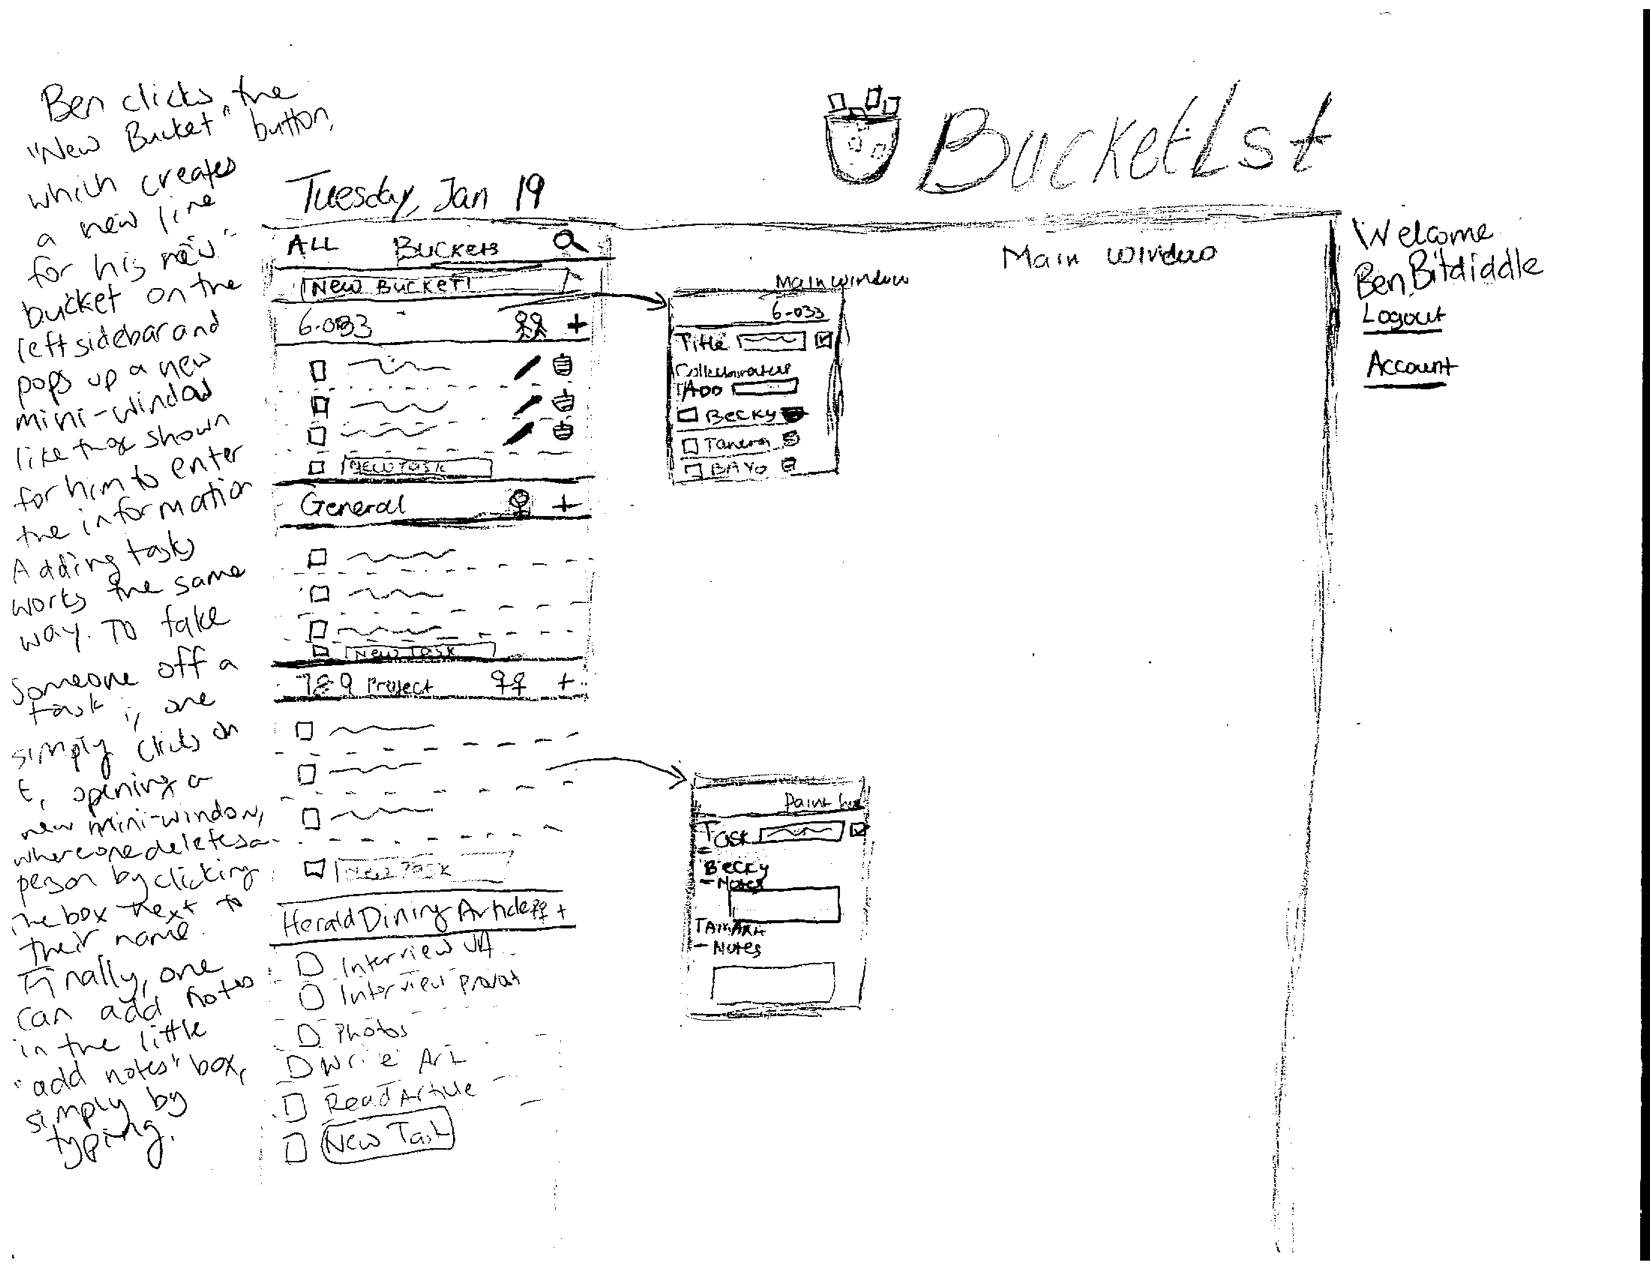 Ben clicks the
"New Bucket" button,
which creates
a new line
for his new
bucket on the
left sidebar and
pops up a new
mini-window
like that shown
for him to enter
the information
Adding tasks
works the same
way. To take
someone off a
task, one
simply clicks on
it, opening a
new mini-window,
where one deletes a
person by clicking
the box next to
their name.
Finally, one
can add notes
in the little
"add notes" box,
simply by
typing.
BucketLst
Tuesday, Jan 19
ALL Buckets
New Bucket!
6.033
New Task
General
New Task
7&9 Project
New Task
Herald Dining Article
Interview VA
Interview
Photos
Write Art
Read Article
New Task
Main Window
Main window
6.033
Title
Collaborators
Add
Becky
BAYO
Paint
Task
Becky
- Notes
TAMARA
- Notes
Welcome
Ben Bitdiddle
Logout
Account